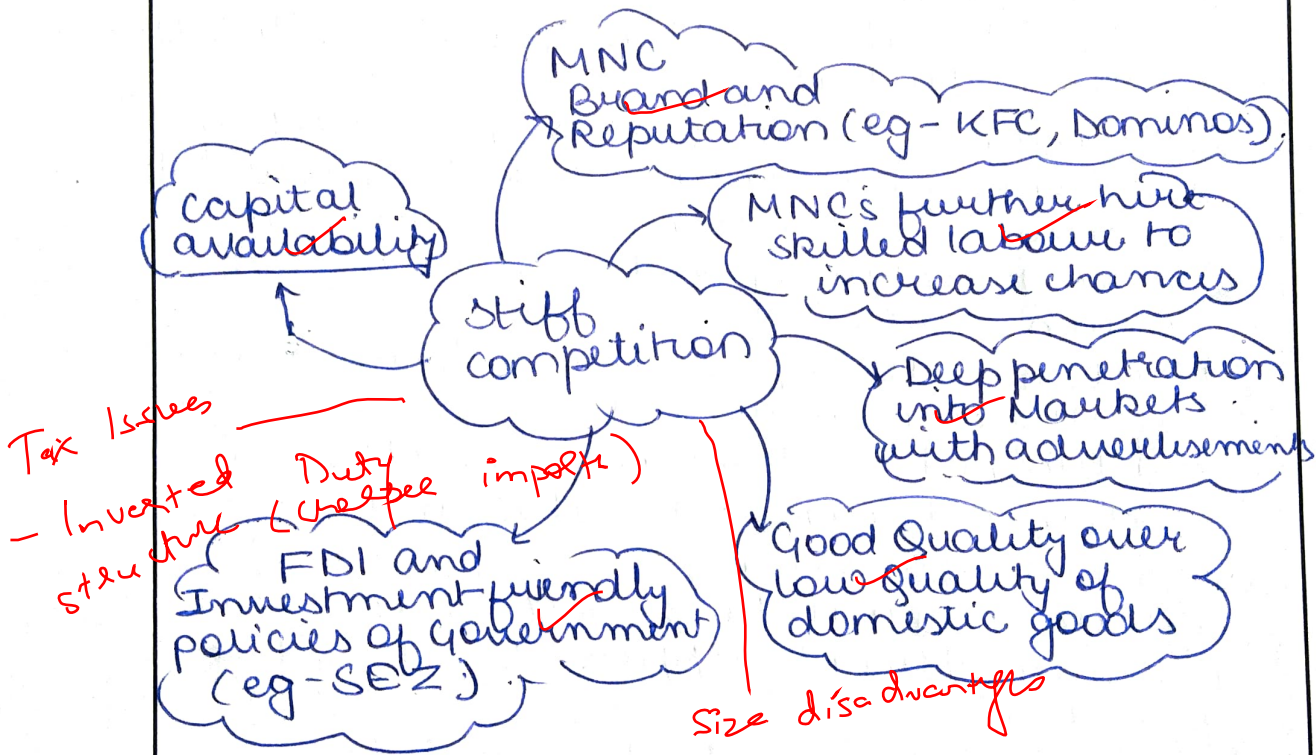 MNC
Brand and
Reputation (eg- KFC, Dominos).
capital
availability
MNC's further hire
skilled labour to
increase chances
stiff
competition
Deep penetration
into Markets
with advertisements
Tax Issues
- Inverted Duty
structure (cheaper imports)
FDI and
Investment-friendly
policies of Government
(eg-SEZ)
Good Quality over
low quality of
domestic goods
Size disadvantages